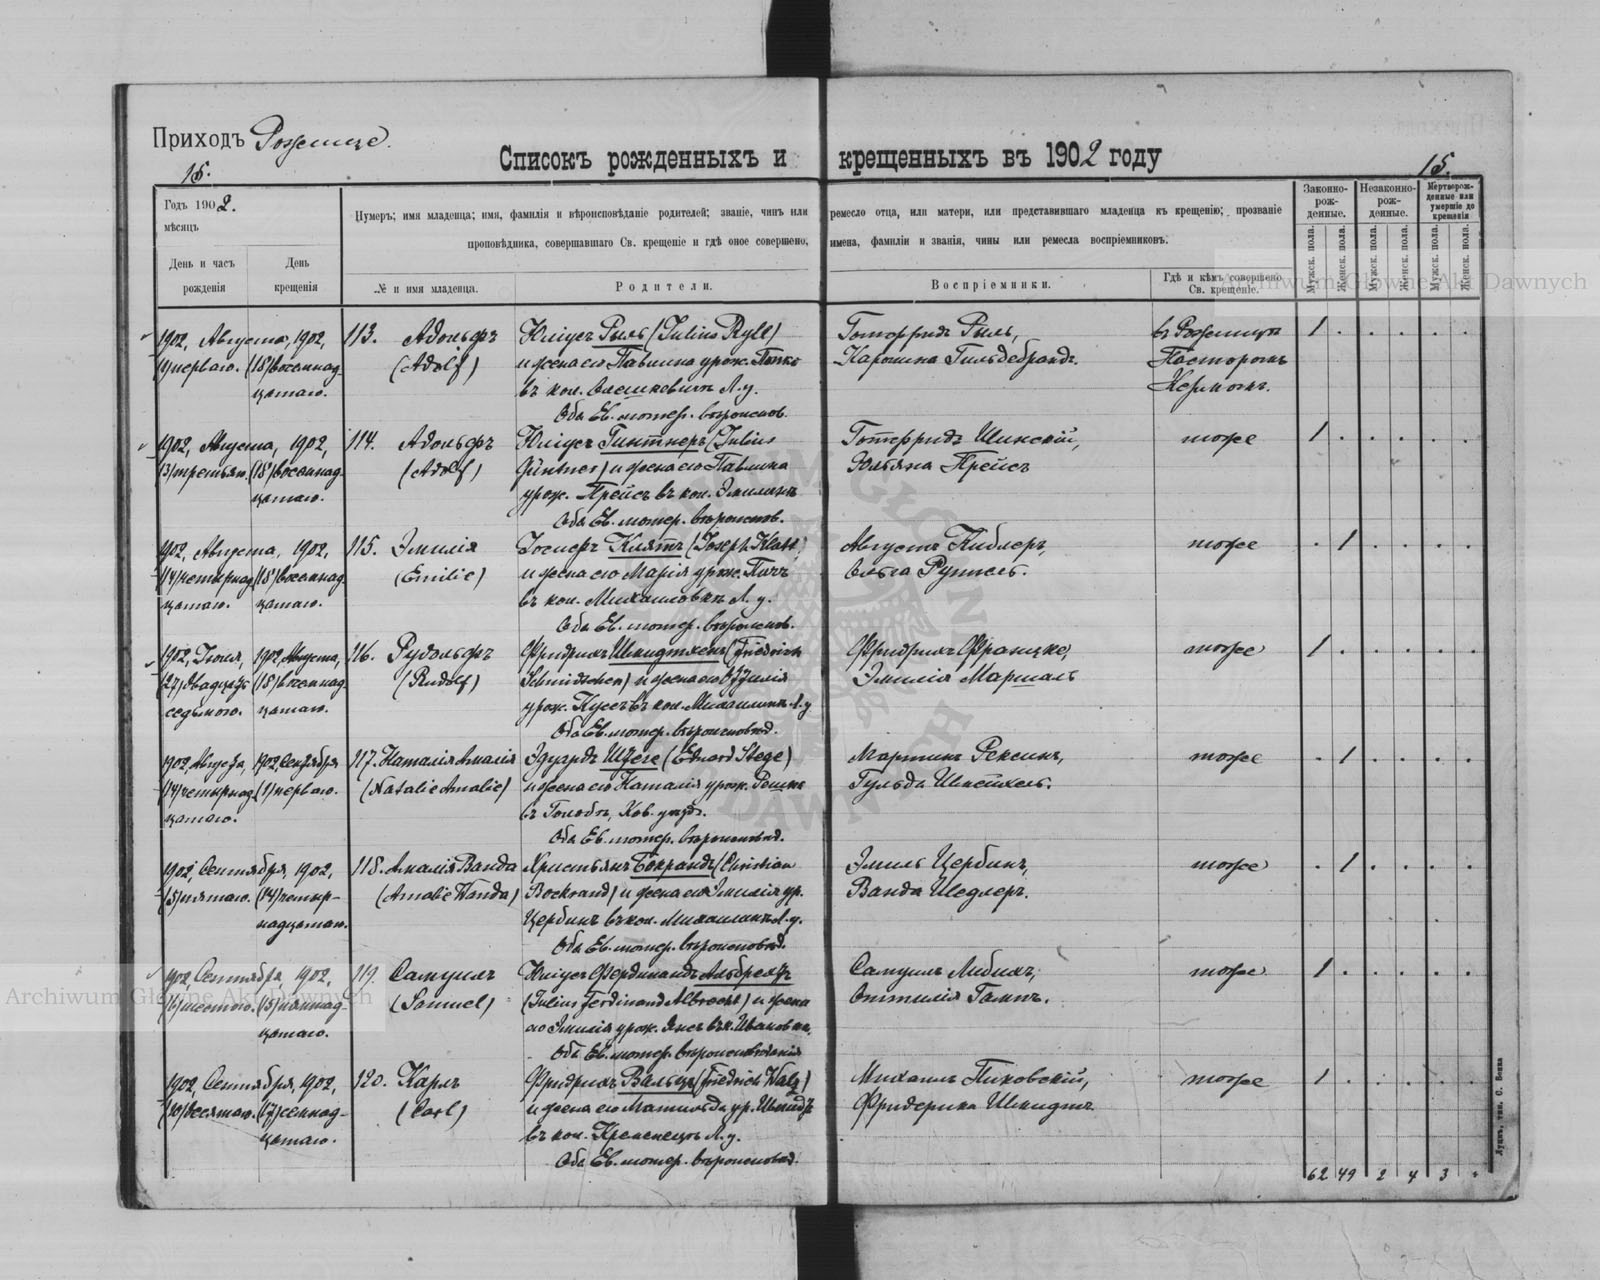 Приходъ Рожище.
Списокъ рожденныхъ и крещенныхъ въ 1902 году
15.
15.
Годъ 1902.
мѣсяцъ
День и часъ рожденія
День крещенія
Нумеръ; имя младенца; имя, фамилія и вѣроисповѣданіе родителей; званіе, чинъ или ремесло отца, или матери, или представившаго младенца къ крещенію; прозваніе
проповѣдника, совершавшаго Св. крещеніе и гдѣ оное совершено, имена, фамиліи и званія, чины или ремесла воспріемниковъ.
№ и имя младенца.
Родители.
Воспріемники.
Гдѣ и кѣмъ совершено Св. крещеніе.
Законно-рож-денные.
Незаконно-рож-денные.
Мертворож-денные или умершіе до крещенія
Мужск. пола.
Женск. пола.
Мужск. пола.
Женск. пола.
Мужск. пола.
Женск. пола.
1902, Августа, 1902, 113. Адольфъ Юліусъ Рыль (Julius Ryll) Готфридъ Рыль, въ Рожищѣ 1
(1) перваго. (18) восемнад- (Adolf) и жена его Павлина урож. Каролина Гильдебрандъ. Пасторомъ
цатаго. въ кол. Л. у. Кермомъ.
Оба Ев. лютер. вѣроиспов.
1902, Августа, 1902, 114. Адольфъ Юліусъ Гинтнеръ (Julius Готфридъ Шинскій, тоже 1
(3) третьяго. (18) восемнад- (Adolf) Güntner) и жена его Павлина Юльяна Прейсъ
цатаго. урож. Прейсъ въ кол. Эмилинъ
Оба Ев. лютер. вѣроиспов.
1902, Августа, 1902, 115. Эмилія Іосифъ Клятъ (Joseph Klatt) Августъ Киблеръ, тоже 1
(14) четырнад- (18) восемнад- (Emilie) и жена его Марія урож.
цатаго. цатаго. въ кол. Михаиловкѣ Л. у.
Оба Ев. лютер. вѣроиспов.
1902, Іюля, 1902, Августа, 116. Рудольфъ Фридрихъ Шмидтхенъ (Friedrich Фридрихъ Францке, тоже 1
(27) двадцать (18) восемнад- (Rudolf) Schmidtchen) и жена его Эмилія Маршалъ
седьмого. цатаго. урож. въ кол. Михаилинъ Л. у
Оба Ев. лютер. вѣроисповѣд.
1902, Августа, 1902, Сентября 117. Наталія Амалія Эдуардъ Штеге (Eduard Stege) Мартинъ Рексинъ, тоже 1
(14) четырнад- (1) перваго. (Natalie Amalie) и жена его Наталія урож. Гульда
цатаго. въ Голобѣ, Ков. уѣзд.
Оба Ев. лютер. вѣроисповѣд.
1902, Сентября, 1902, 118. Амалія Ванда Христьянъ Бокрандъ (Christian Эмиль Цербинъ, тоже 1
(5) пятаго. (14) четыр- (Amalie Wanda) Bockrand) и жена его Эмилія ур. Ванда Шедлеръ.
надцатаго. Цербинъ въ кол. Михаилинъ Л. у.
Оба Ев. лютер. вѣроисповѣд.
1902, Сентября, 1902, 119. Самуилъ Юліусъ Фердинандъ Альбрехтъ Самуилъ Либихъ, тоже 1
(6) шестого. (15) пятнад- (Samuel) (Julius Ferdinand Albrecht) и жена Оттилія
цатаго. его Эмилія урож.
Оба Ев. лютер. вѣроисповѣданія
1902, Сентября, 1902, 120. Карлъ Фридрихъ Вальцъ (Friedrich Walz) Михаилъ Пиховскій, тоже 1
(10) десятаго. (17) семнад- (Carl) и жена его Матильда ур. Шмидтъ Фридерика Шмидтъ
цатаго. въ кол. Кременецъ Л. у.
Оба Ев. лютер. вѣроисповѣд.
62 49 2 4 3
Archiwum Główne Akt Dawnych
Archiwum Główne Akt Dawnych